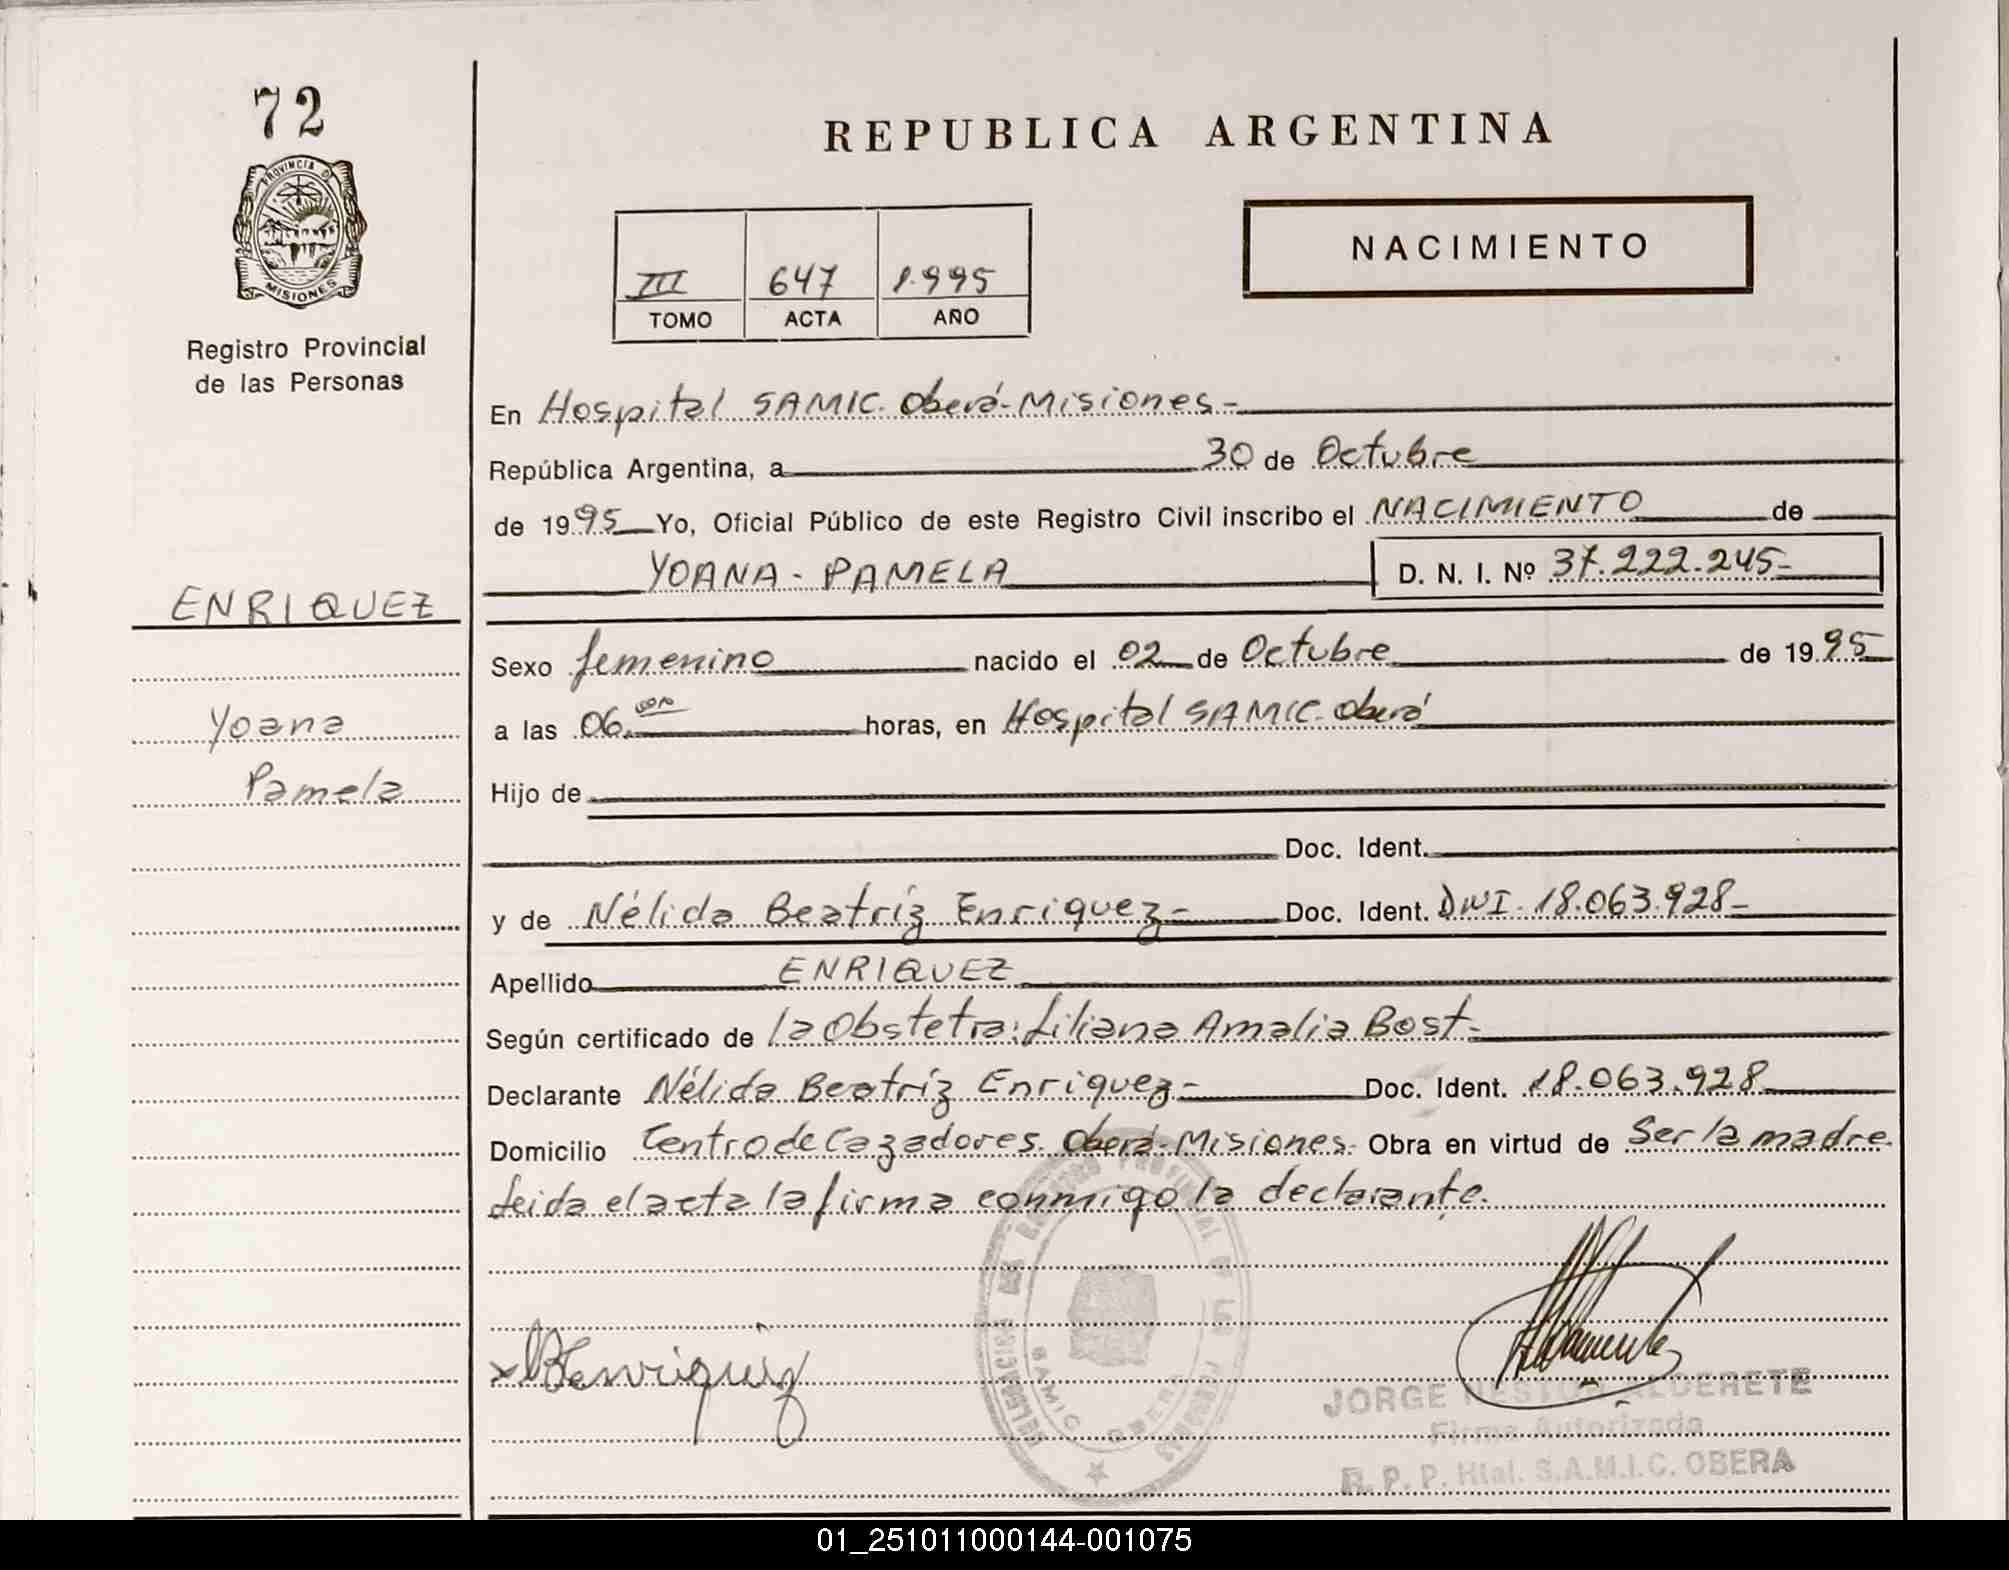 72
PROVINCIA D
MISIONES
Registro Provincial
de las Personas
REPUBLICA ARGENTINA
NACIMIENTO
III 647 1.995
TOMO ACTA AÑO
En Hospital SAMIC. Oberá-Misiones-
República Argentina, a 30 de Octubre
de 1995 Yo, Oficial Público de este Registro Civil inscribo el NACIMIENTO de
YOANA - PAMELA D. N. I. Nº 37.222.245-
ENRIQUEZ
Yoana
Pamela
Sexo femenino nacido el 02 de Octubre de 1995
a las 06. horas, en Hospital SAMIC. Oberá
Hijo de
Doc. Ident.
y de Nélida Beatríz Enriquez- Doc. Ident. DNI. 18.063.928-
Apellido ENRIQUEZ
Según certificado de la Obstetra: Liliana Amalia Bost-
Declarante Nélida Beatríz Enriquez- Doc. Ident. 18.063.928
Domicilio Centro de Cazadores. Oberá-Misiones- Obra en virtud de Ser la madre.
Leida el acta la firma conmigo la declarante.
SAMIC OBERA
JORGE NESTOR ALDERETE
Firma Autorizada
R. P. P. Htal. S.A.M.I.C. OBERA
01_251011000144-001075